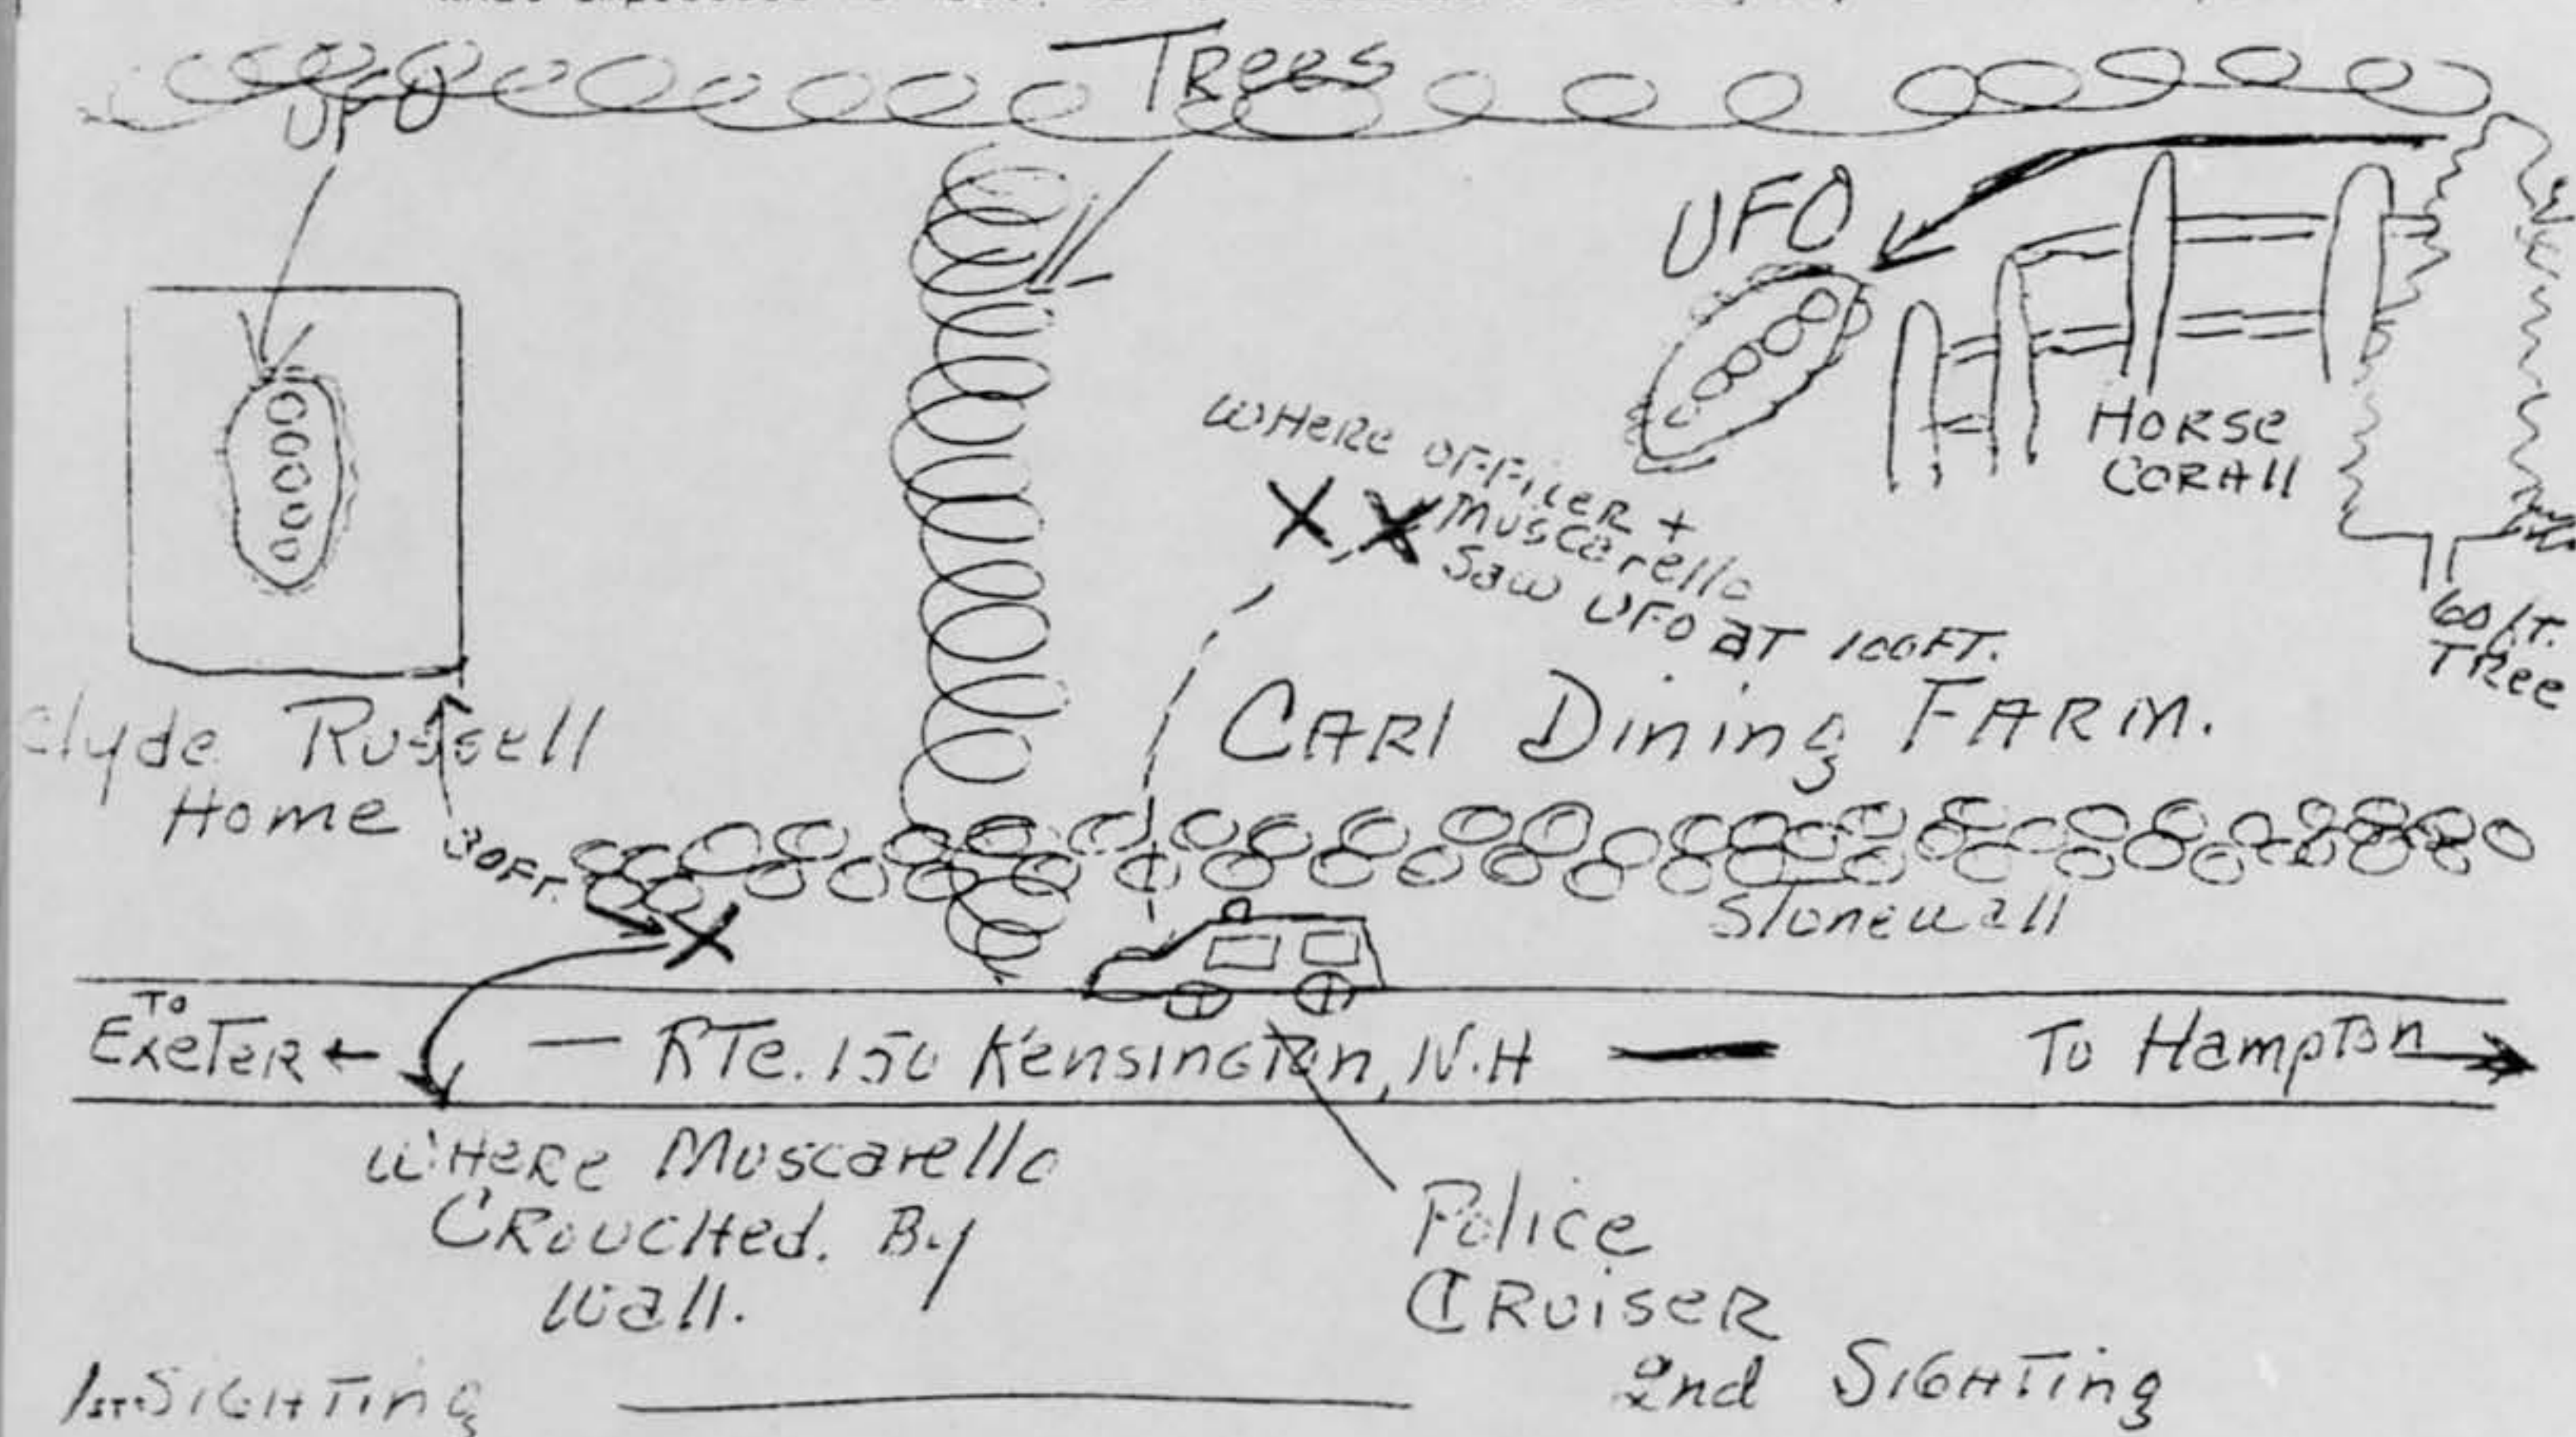 Trees
UFO
UFO
HORSE
CORAll
WHERE OFFICER +
Muscarello
Saw UFO AT 100FT.
60 FT.
TRee
CARl Dining FARM.
Clyde Russell
Home
30FT.
Stonewall
To
EXETER ←
— RTe. 150 Kensington, N.H —
To Hampton →
WHERe Muscarello
CROUCHed. By
Wall.
Police
CRUiseR
1ST SIGHTing
2nd SIGHTing